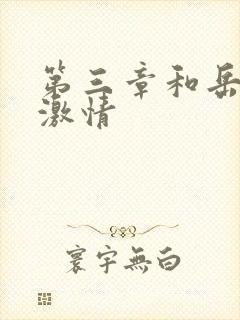 第三章和岳
激情
寰宇無白